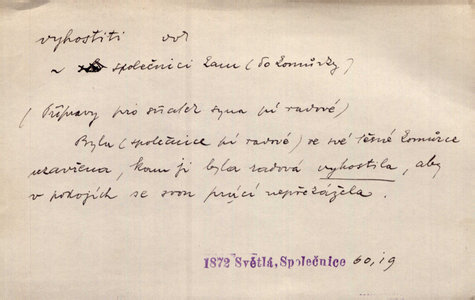 vyhostiti
~ společnici kam (do komůrky)
(Přípravy pro sňatek syna pí radové)
Byla (společnice pí radové) ve své těsné komůrce
uzavřena, kam ji byla radová vyhostila, aby
v pokojích se svou prací nepřekážela.
1872 Světlá, Společnice 60, 19